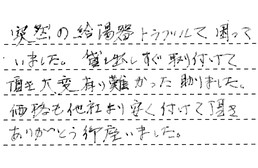 突然の給湯器トラブルで困って
いました。貸し出しすぐ取り付けて
頂き大変有り難かった助りました。
価格も他社より安く付けて頂き
ありがとう御座いました。